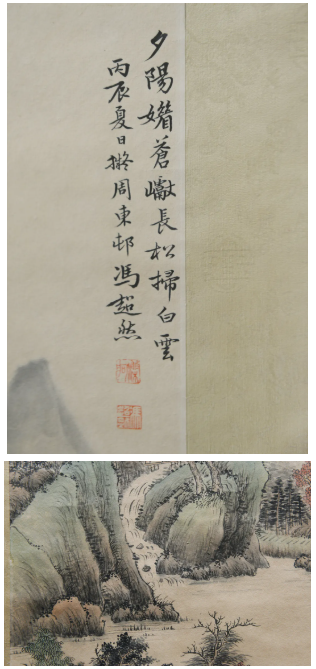 夕陽蒼巘長松掃白雲
丙辰夏日擬周東邨馮超然